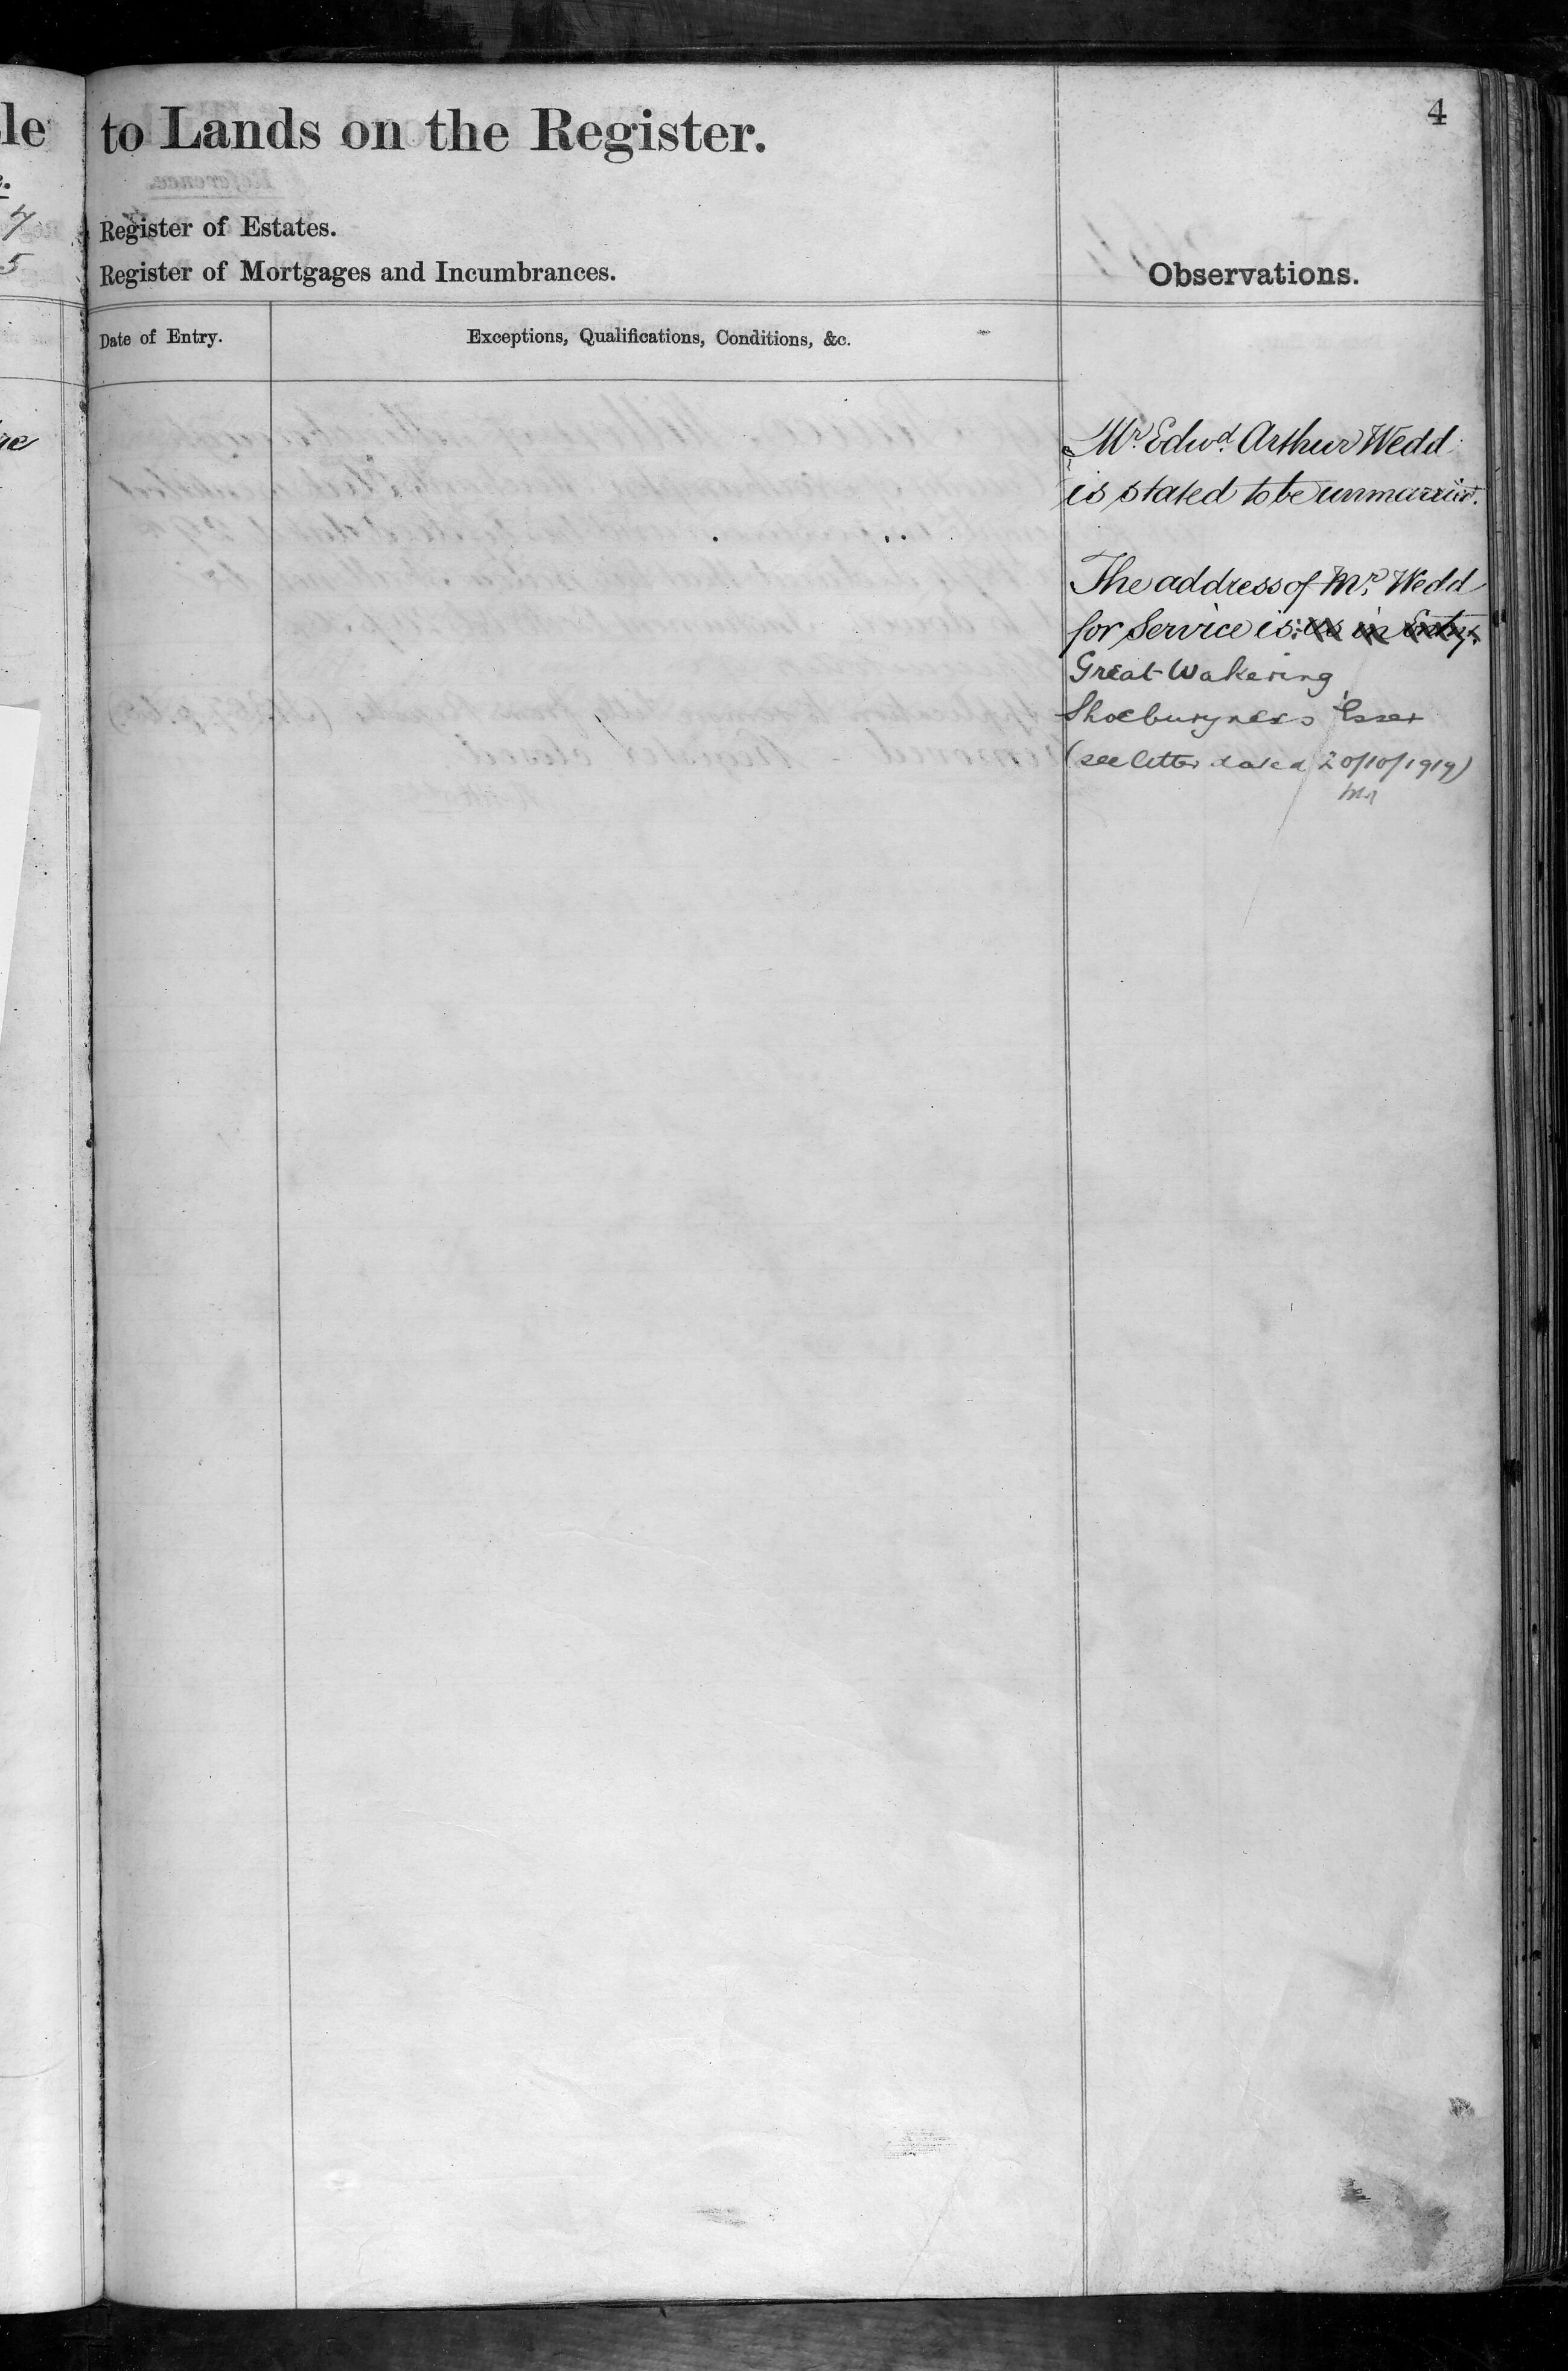 4
to Lands on the Register.
Register of Estates.
Register of Mortgages and Incumbrances.
Observations.
Date of Entry.
Exceptions, Qualifications, Conditions, &c.
Mr. Edwd. Arthur Wedd
is stated to be unmarried.
The address of Mr. Wedd
for Service is: as in Entry.
Great Wakering
Shoeburyness Essex
(see letter dated 20/10/1919)